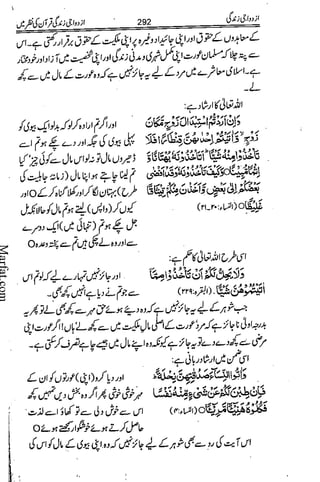 ازدواجی زندگی
292
ازدواجی زندگی قرآن کی نظر میں
کے معاہدوں کے حقوق اور اپنی جائیداد وغیرہ پر اپنی ملکیت کے حقوق برقرار رکھتی ہے۔ اس
سے پتہ چلا کہ مسلمان عورت اپنی مکمل شہری و مدنی زندگی اور اپنی شخصیت میں آزاد اور خودمختار
ہے۔ اسلامی معاشرے میں مرد کے لیے یہ جائز نہیں ہے کہ وہ عورت کے مال میں سے کچھ
لے۔
اللہ تعالیٰ کا ارشاد ہے:
وَإِنْ أَرَدْتُمُ اسْتِبْدَالَ زَوْجٍ مَكَانَ
زَوْجٍ ۙ وَآتَيْتُمْ إِحْدَاهُنَّ قِنْطَارًا فَلَا
تَأْخُذُوا مِنْهُ شَيْئًا ۚ أَتَأْخُذُونَهُ بُهْتَانًا وَّ
إِثْمًا مُبِينًا ۝ وَكَيْفَ تَأْخُذُونَهُ وَقَدْ أَفْضَىٰ
بَعْضُكُمْ إِلَىٰ بَعْضٍ وَأَخَذْنَ مِنْكُمْ مِيثَاقًا
غَلِيظًا ۝ (النساء: ۲۰-۲۱)
اور اگر تم ارادہ کر لو کہ بدلو ایک بیوی کو
پہلی بیوی کی جگہ اور دے چکے ہو تم اسے
ڈھیروں مال تو نہ لو اس مال سے کوئی چیز کیا
تم لینا چاہتے ہو اپنا مال (زمانہ جاہلیت کی
طرح) بہتان لگا کر اور کھلا گناہ کر کے O اور
کیوں کر (واپس) لیتے ہو تم مال کو حالانکہ مل
جل چکے ہو تم (تنہائی میں) ایک دوسرے
سے اور وہ لے چکی ہیں تم سے پختہ وعدہ O
اسی طرح اللہ تعالیٰ کا حکم ہے:
وَلَا يَحِلُّ لَكُمْ أَنْ تَأْخُذُوا مِمَّا
آتَيْتُمُوهُنَّ شَيْئًا۔ (البقرہ: ۲۲۹)
اور جائز نہیں تمہارے لیے کہ لو تم اس
سے جو تم نے دیا ہے انہیں کچھ بھی۔
جب شوہر کے لیے یہ جائز نہیں ہے کہ وہ دیئے ہوئے حق مہر سے کچھ بھی لے تو پھر یہ
بدرجہ اولیٰ ناجائز ہے کہ مرد عورت کے اصلی مال ملکیت میں سے کچھ لے ہاں! اگر عورت اپنی
مرضی سے کچھ دے دے تو یہ جائز ہے کیونکہ وہ اپنے مال میں جیسے چاہے تصرف کر سکتی ہے۔
اسی ضمن میں ارشاد ربانی ہے:
وَآتُوا النِّسَاءَ صَدُقَاتِهِنَّ نِحْلَةً ۚ
فَإِنْ طِبْنَ لَكُمْ عَنْ شَيْءٍ مِنْهُ نَفْسًا
فَكُلُوهُ هَنِيئًا مَرِيئًا ۝ (النساء: ۴)
اور دیا کرو (اپنی) عورتوں کو ان کے
مہر خوشی خوشی پھر اگر وہ بخش دیں تمہیں کچھ
اس سے خوش دلی سے تو کھاؤ اسے لذت
حاصل کرتے ہوئے خوشگوار سمجھتے ہوئے O
اس آیت کی رو سے بھی شوہر کے لیے جائز نہیں کہ وہ اپنی بیوی کے مال کو اس کی
Marfat.com